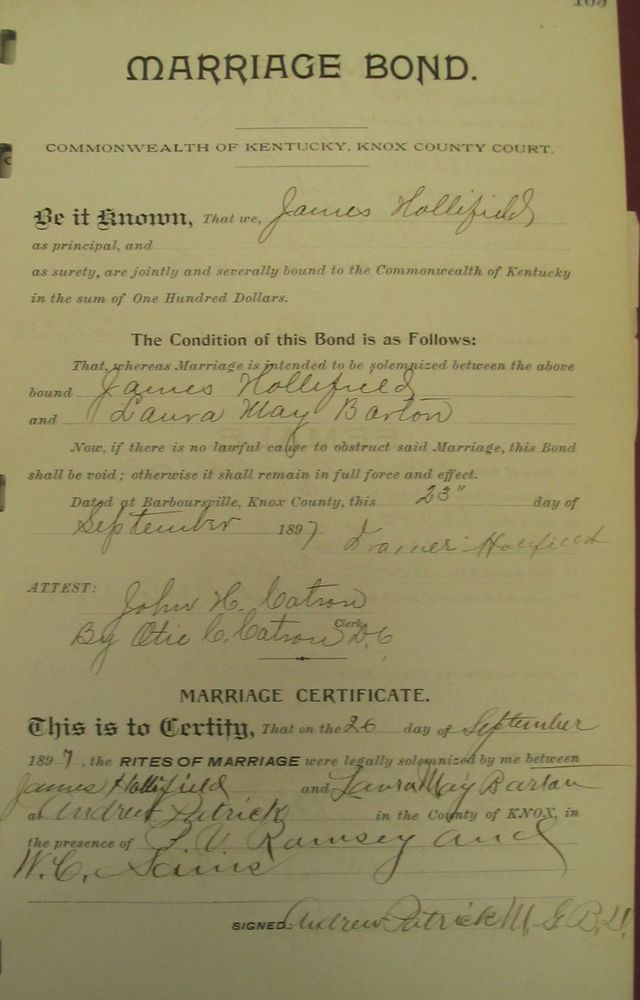 169
MARRIAGE BOND.
COMMONWEALTH OF KENTUCKY, KNOX COUNTY COURT.
Be it Known, That we, James Hollifield
as principal, and
as surety, are jointly and severally bound to the Commonwealth of Kentucky
in the sum of One Hundred Dollars.
The Condition of this Bond is as Follows:
That, whereas Marriage is intended to be solemnized between the above
bound James Hollifield
and Laura May Barton
Now, if there is no lawful cause to obstruct said Marriage, this Bond
shall be void; otherwise it shall remain in full force and effect.
Dated at Barboursville, Knox County, this 23" day of
September 1897 James Hollifield
ATTEST:
John H. Catron
Clerk
By Otie C. Catron D.C.
MARRIAGE CERTIFICATE.
This is to Certify, That on the 26 day of September
1897, the RITES OF MARRIAGE were legally solemnized by me between
James Hollifield and Laura May Barton
at Andrew Patrick in the County of KNOX, in
the presence of Ramsey and
W. C.
SIGNED: Andrew Patrick M. G. B.